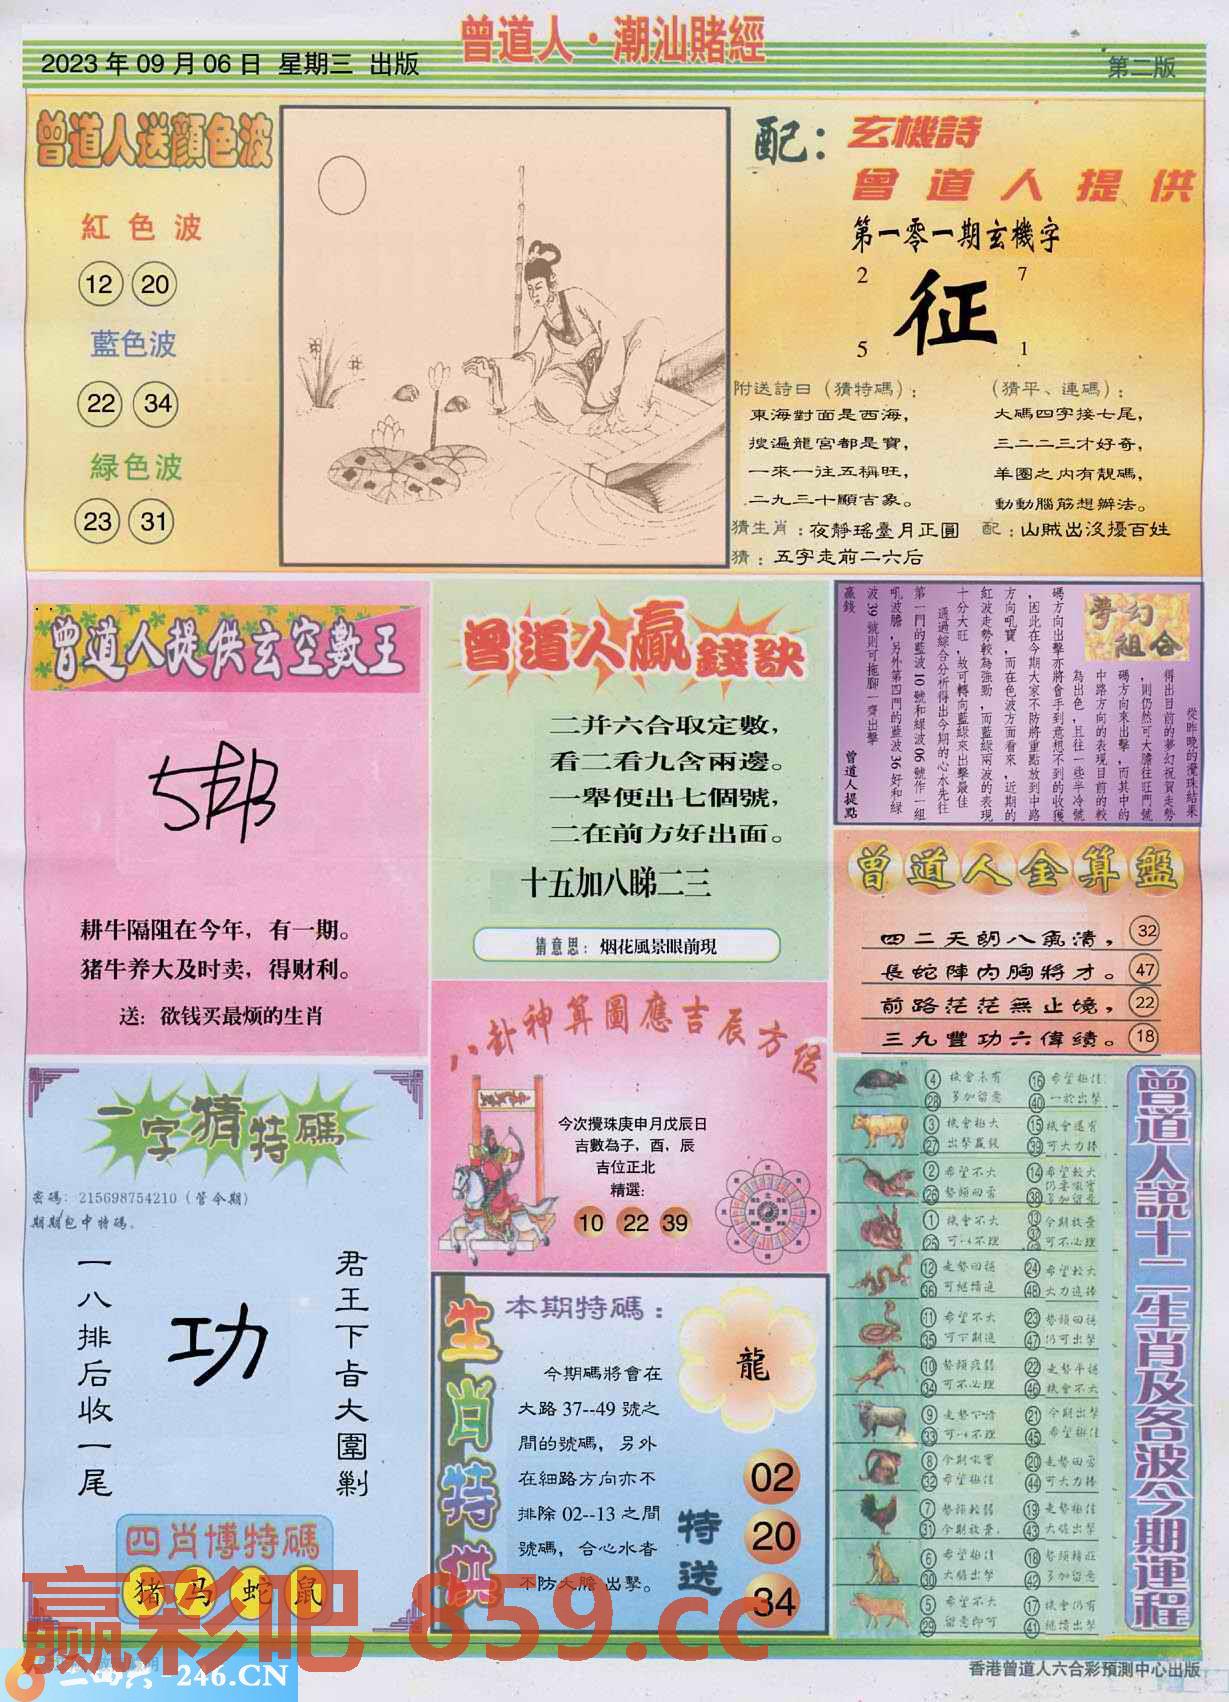 曾道人·潮汕賭經
2023 年 09 月 06 日 星期三 出版
第二版
曾道人送顏色波
紅色波
12 20
藍色波
22 34
綠色波
23 31
配：玄機詩
曾道人提供
第一零一期玄機字
2 7
征
5 1
附送詩曰（猜特碼）：
東海對面是西海，
搜遍龍宮都是寶，
一來一往五稱旺，
二九三十顯吉象。
（猜平、連碼）：
大碼四字接七尾，
三二二三才好奇，
羊圈之內有靚碼，
動動腦筋想辦法。
猜生肖：夜靜瑤臺月正圓
配：山賊出沒擾百姓
猜：五字走前二六后
曾道人提供玄空數王
耕牛隔阻在今年，有一期。
猪牛养大及时卖，得财利。
送：欲钱买最烦的生肖
曾道人贏錢訣
二并六合取定數，
看二看九含兩邊。
一舉便出七個號，
二在前方好出面。
十五加八睇二三
猜意思：烟花風景眼前現
夢幻組合
從昨晚的攪珠結果
得出目前的夢幻祝賀走勢
，則仍然可大膽往旺門號
碼方向來出擊，而其中的
中路方向的表現目前的較
為出色，且往一些半冷號
碼方向出擊亦將會手到意想不到的收獲
，因此在今期大家不防將重點放到中路
方向吼寶，而在色波方面看來，近期的
紅波走勢較為強勁，而藍綠兩波的表現
十分大旺，故可轉向藍綠來出擊最佳
通過綜合分析得出今期的心水先往
第一門的藍波 10 號和綠波 06 號作一組
吼波膽，另外第四門的藍波 36 好和綠
波 39 號則可拖腳一齊出擊
贏錢
曾道人提點
曾道人金算盤
四二天朗八氣清， 32
長蛇陣內胸將才。 47
前路茫茫無止境， 22
三九豐功六偉績。 18
八卦神算圖應吉辰方位
今次攪珠庚申月戊辰日
吉數為子，酉，辰
吉位正北
精選：
10 22 39
一字猜特碼
密碼：215698754210（管今期）
期期包中特碼。
君王下旨大圍剿
功
一八排后收一尾
四肖博特碼
猪 马 蛇 鼠
生肖特供
本期特碼：
龍
今期碼將會在
大路 37--49 號之
間的號碼，另外
在細路方向亦不
排除 02--13 之間
號碼，合心水者
不防大膽出擊。
特送
02
20
34
曾道人說十二生肖及各波今期運程
4 機會未有 16 希望極佳
28 多加留意 40 一於出擊
3 機會極大 15 機會還有
27 出擊贏錢 39 可大力捧
2 希望不大 14 希望較大
26 勢頭回落 38 多加留意
1 機會不大 13 今期放棄
25 可以不理 可不必理
12 走勢回穩 24 希望較大
36 可繼續進 48 大力追捧
11 希望不大 23 勢頭回穩
35 可下期進 47 仍可出擊
10 勢頭疲弱 22 走勢平穩
34 可不必理 46 機會不大
9 21 今期出擊
33 可以不理 45 希望極佳
8 今期吼寶 20 走勢回落
32 希望極佳 44 可大力捧
7 勢頭較弱 19 走勢極佳
31 今期放棄 43 大膽出擊
6 希望極佳 18
30 大膽出擊 42 多加留意
5 希望不大 17 機會仍有
29 留意即可 41 繼續出擊
赢彩吧 859.cc
二四六-246.CN
香港曾道人六合彩預測中心出版